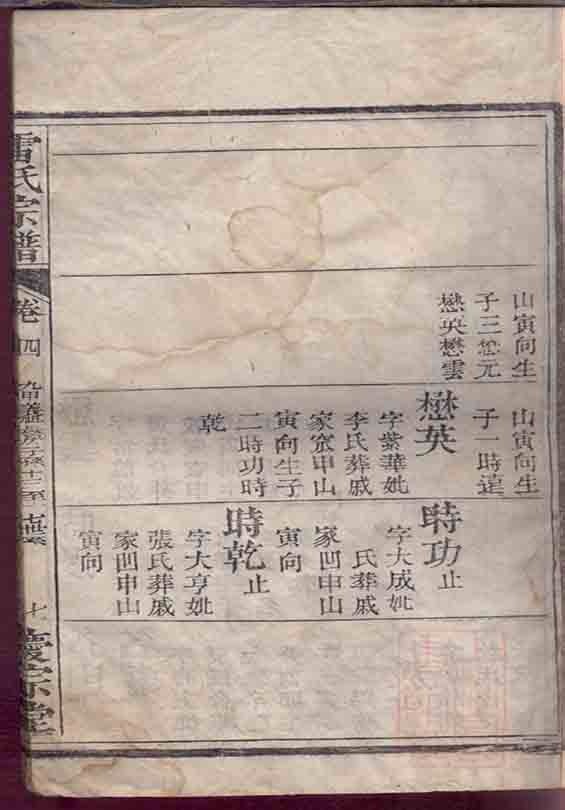 山寅向生
子三懋元
懋英懋雲
山寅向生
子一時達
懋英
字紫華妣
李氏葬戚
家窊申山
寅向生子
二時功時
乾
時功止
字大成妣
氏葬戚
家凹申山
寅向
時乾止
字大亨妣
張氏葬戚
家凹申山
寅向
雷氏宗譜
卷四
七
慶宗堂